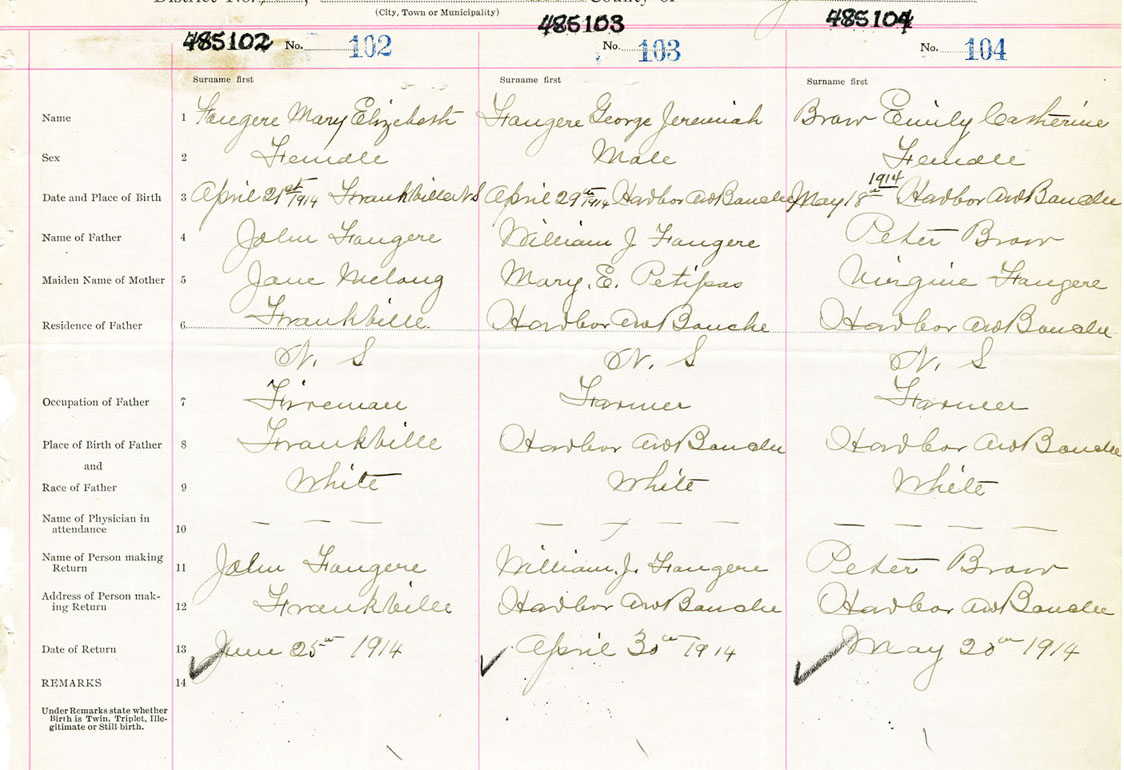 District No. County of
(City, Town or Municipality)
485102 No. 102 485103 No. 103 485104 No. 104
Surname first Surname first Surname first
Name 1 Fougere Mary Elizebeth Fougere George Jeremiah Brow Emily Catherine
Sex 2 Female Male Female
Date and Place of Birth 3 April 21st 1914 Frankville N S April 29th 1914 Harbor Au Bouche May 18th 1914 Harbor Au Bouche
Name of Father 4 John Fougere William J Fougere Peter Brow
Maiden Name of Mother 5 Jane Melong Mary. E. Petipas Virginie Fougere
Residence of Father 6 Frankville Harbor Au Bouche Harbor Au Bouche
N. S N. S N. S
Occupation of Father 7 Fireman Farmer Farmer
Place of Birth of Father 8 Frankville Harbor Au Bouche Harbor Au Bouche
and
Race of Father 9 White White White
Name of Physician in
attendance 10 — — — — — — — — — — —
Name of Person making
Return 11 John Fougere William. J. Fougere Peter Brow
Address of Person mak-
ing Return 12 Frankville Harbor Au Bouche Harbor Au Bouche
Date of Return 13 June 25th 1914 April 30th 1914 May 20th 1914
REMARKS 14
Under Remarks state whether
Birth is Twin, Triplet, Ille-
gitimate or Still-birth.